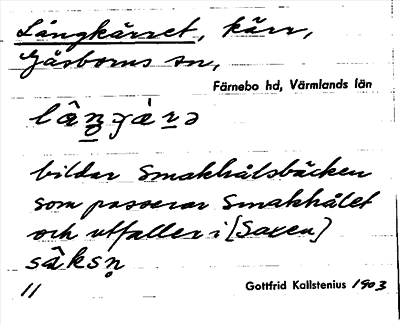 Långkärret, kärr,
Gåsborns sn,
Färnebo hd, Värmlands län
bildar Smakhålsbäcken
som passerar Smakhålet
och utfaller i [Saxen]
11
Gottfrid Kallstenius 1903